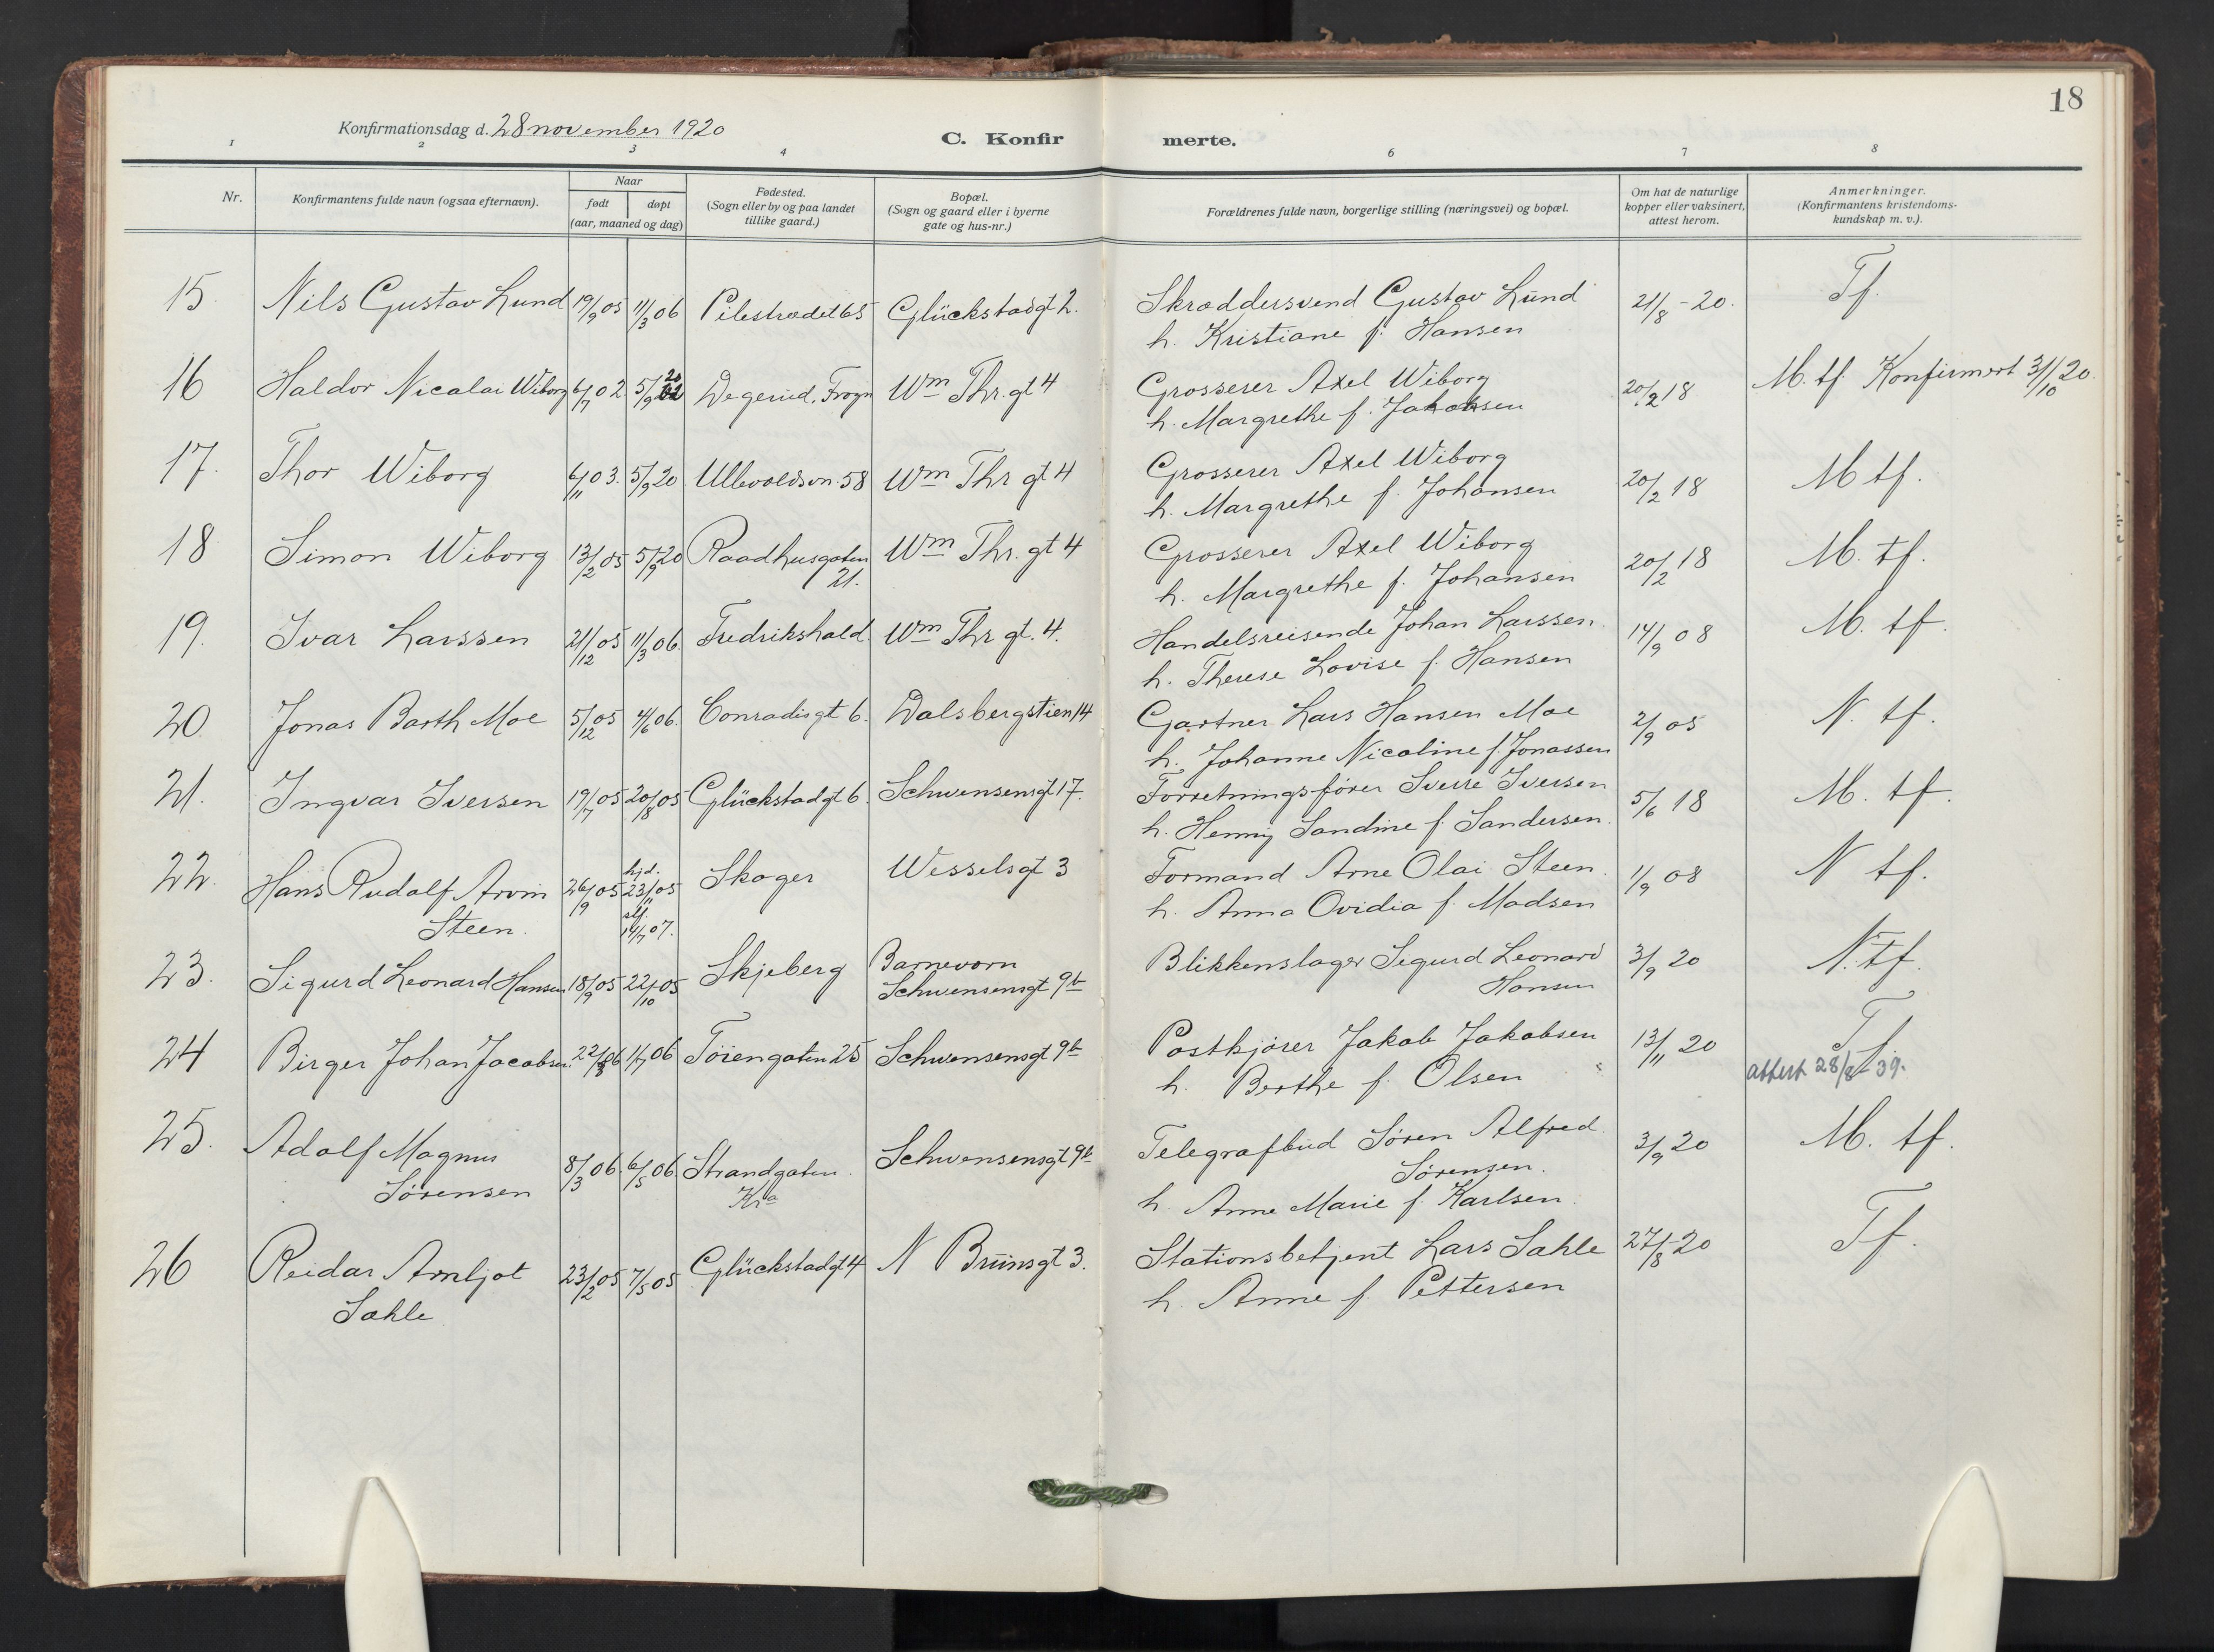 18
Konfirmationsdag d. 28 november 1920
C. Konfir merte.
1 2 3 4 6 7 8
Nr.
Konfirmantens fulde navn (ogsaa efternavn).
Naar
født døpt
(aar, maaned og dag)
Fødested.
(Sogn eller by og paa landet
tillike gaard.)
Bopæl.
(Sogn og gaard eller i byerne
gate og hus-nr.)
Forældrenes fulde navn, borgerlige stilling (næringsvei) og bopæl.
Om hat de naturlige
kopper eller vaksinert,
attest herom.
Anmerkninger.
(Konfirmantens kristendoms-
kundskap m. v.).
15. Nils Gustav Lund 19/9 05 11/3 06 Pilestrædet 65 Glückstadgt 2. Skræddersvend Gustav Lund 21/8 - 20. Tf.
h. Kristiane f. Hansen
16 Haldor Nicolai Wiborg 6/7 02. 5/9 20 Degerud, Frogn Wm Thr. gt 4 Grosserer Axel Wiborg 20/2 18 M. tf. Konfirmert 31/10 20.
h. Margrethe f. Johansen
17. Thor Wiborg 6/11 03. 5/9 20 Ullevoldsvn. 58 Wm Thr gt 4 Grosserer Axel Wiborg 20/2 18 M tf.
h. Margrethe f. Johansen
18 Simon Wiborg 13/2 05 5/9 20 Raadhusgaten Wm Thr. gt 4 Grosserer Axel Wiborg 20/2 18 M. tf.
21.
h. Margrethe f. Johansen
19. Ivar Larssen 21/12 05 11/3 06. Fredrikshald. Wm Thr gt. 4. Handelsreisende Johan Larssen. 14/9 08 M. tf.
h. Therese Lovise f. Hansen
20 Jonas Barth Moe 5/12 05 4/6 06. Conradisgt 6. Dalsbergstien 14 Gartner Lars Hansen Moe 2/9 05 N. tf.
h. Johanne Nicoline f. Jonassen
21. Ingvar Iversen 19/7 05 20/8 05 Glückstadgt 6. Schwensensgt 17. Forretningsfører Sverre Iversen 5/6 18 M. tf.
h. Henny Sandine f. Sandersen.
22. Hans Rudolf Arvin 26/9 05 hjd. 23/11 05 Skoger Wesselsgt 3 Formand Arne Olai Steen. 1/9 08 N tf.
Steen. stf. 14/7 07.
h. Anna Ovidia f. Madsen
23. Sigurd Leonard Hansen 18/9 05 22/10 05 Skjeberg Barnevorn Blikkenslager Sigurd Leonard 3/9 20 N. tf.
Schwensensgt 9b Hansen
24 Birger Johan Jacobsen. 22/3 06 1/7 06 Tøiengaten 25 Schwensensgt 9b Postkjører Jakob Jakobsen 13/11 20 Tf.
h. Berthe f. Olsen
attest 28/8 - 39.
25. Adolf Magnus 8/3 06. 6/5 06. Strandgaten. Schwensensgt 9b Telegrafbud Søren Alfred 3/9 20 M. tf.
Sørensen Kra Sørensen.
h. Anne Marie f. Karlsen.
26 Reidar Arnljot 23/2 05 7/5 05 Glückstadgt 4 N Brunsgt 3. Stationsbetjent Lars Sahle 27/8 - 20 Tf.
Sahle
h. Anne f. Pettersen